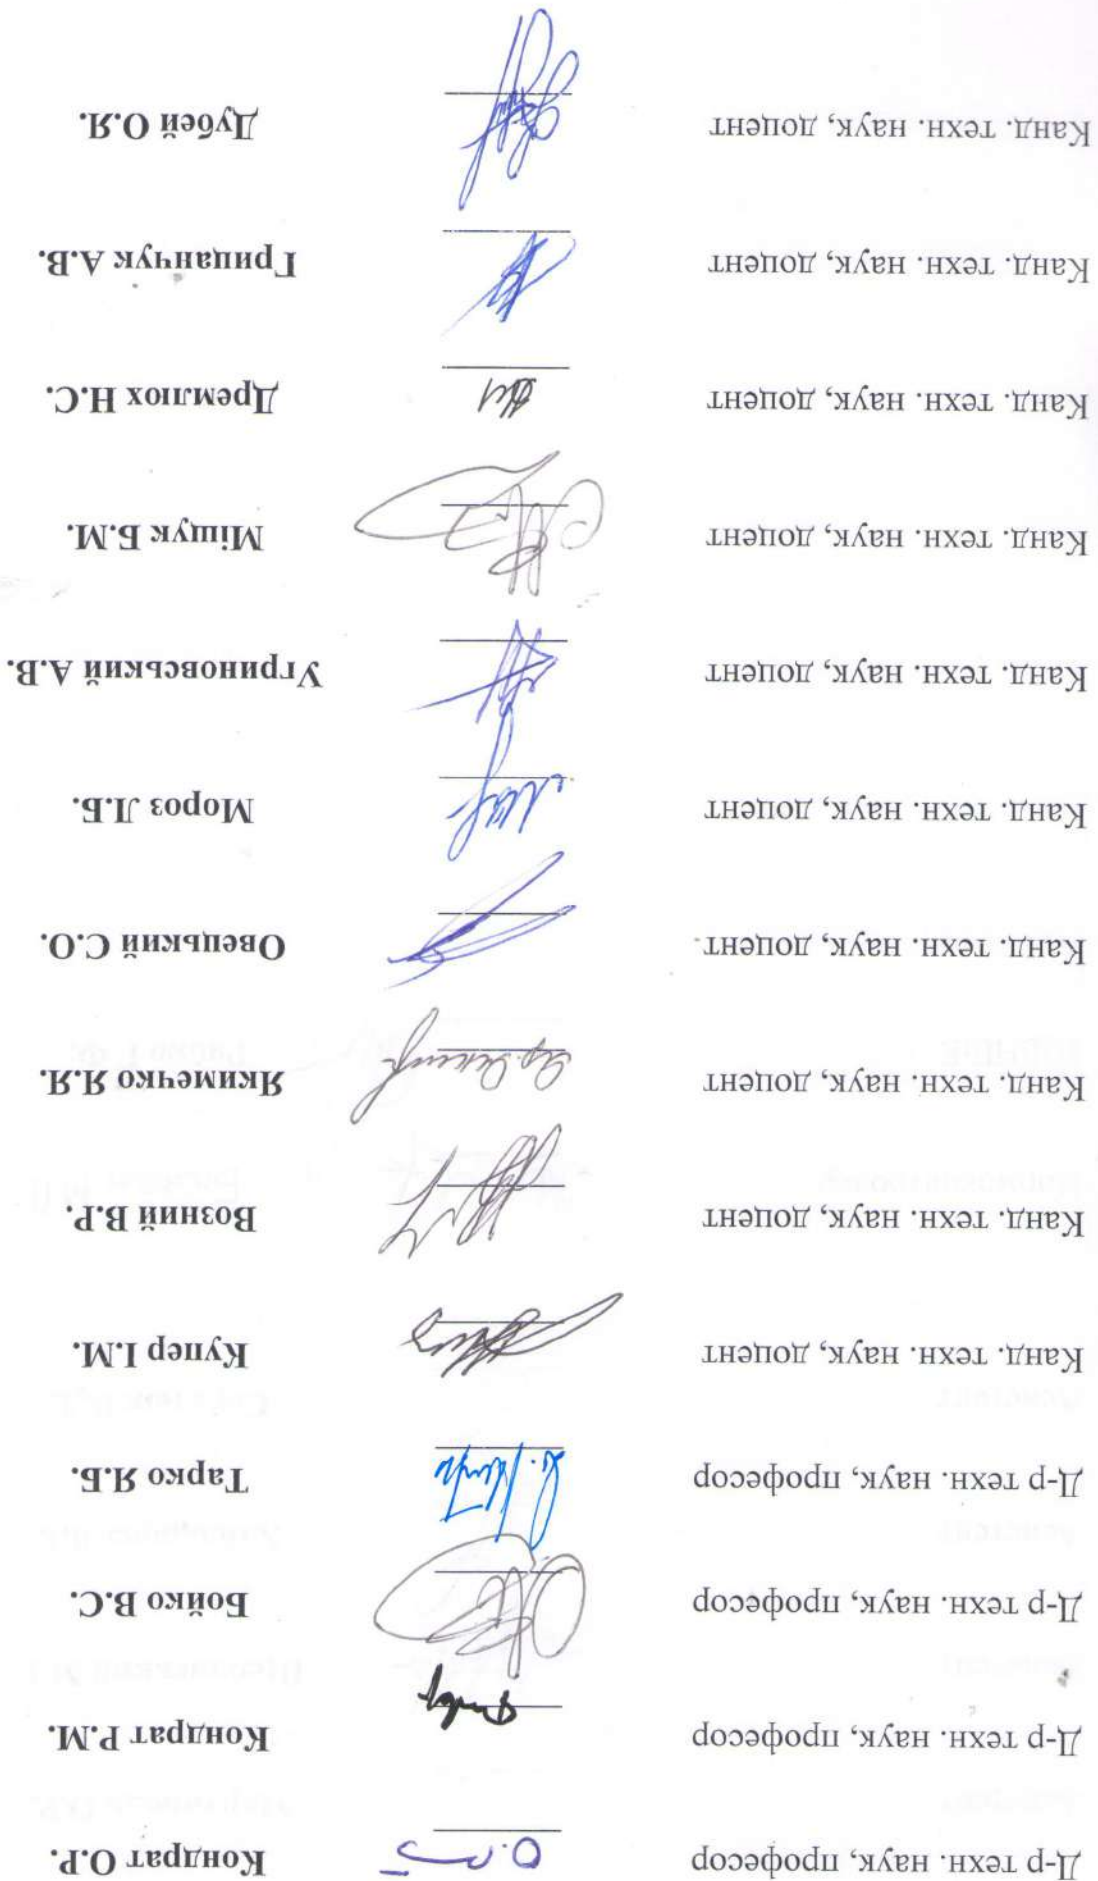 Д-р техн. наук, професор Кондрат О.Р.
Д-р техн. наук, професор Кондрат Р.М.
Д-р техн. наук, професор Бойко В.С.
Д-р техн. наук, професор Тарко Я.Б.
Канд. техн. наук, доцент Купер І.М.
Канд. техн. наук, доцент Возний В.Р.
Канд. техн. наук, доцент Якимечко Я.Я.
Канд. техн. наук, доцент Овецький С.О.
Канд. техн. наук, доцент Мороз Л.Б.
Канд. техн. наук, доцент Угриновський А.В.
Канд. техн. наук, доцент Міщук Б.М.
Канд. техн. наук, доцент Дремлюх Н.С.
Канд. техн. наук, доцент Грицанчук А.В.
Канд. техн. наук, доцент Дубей О.Я.